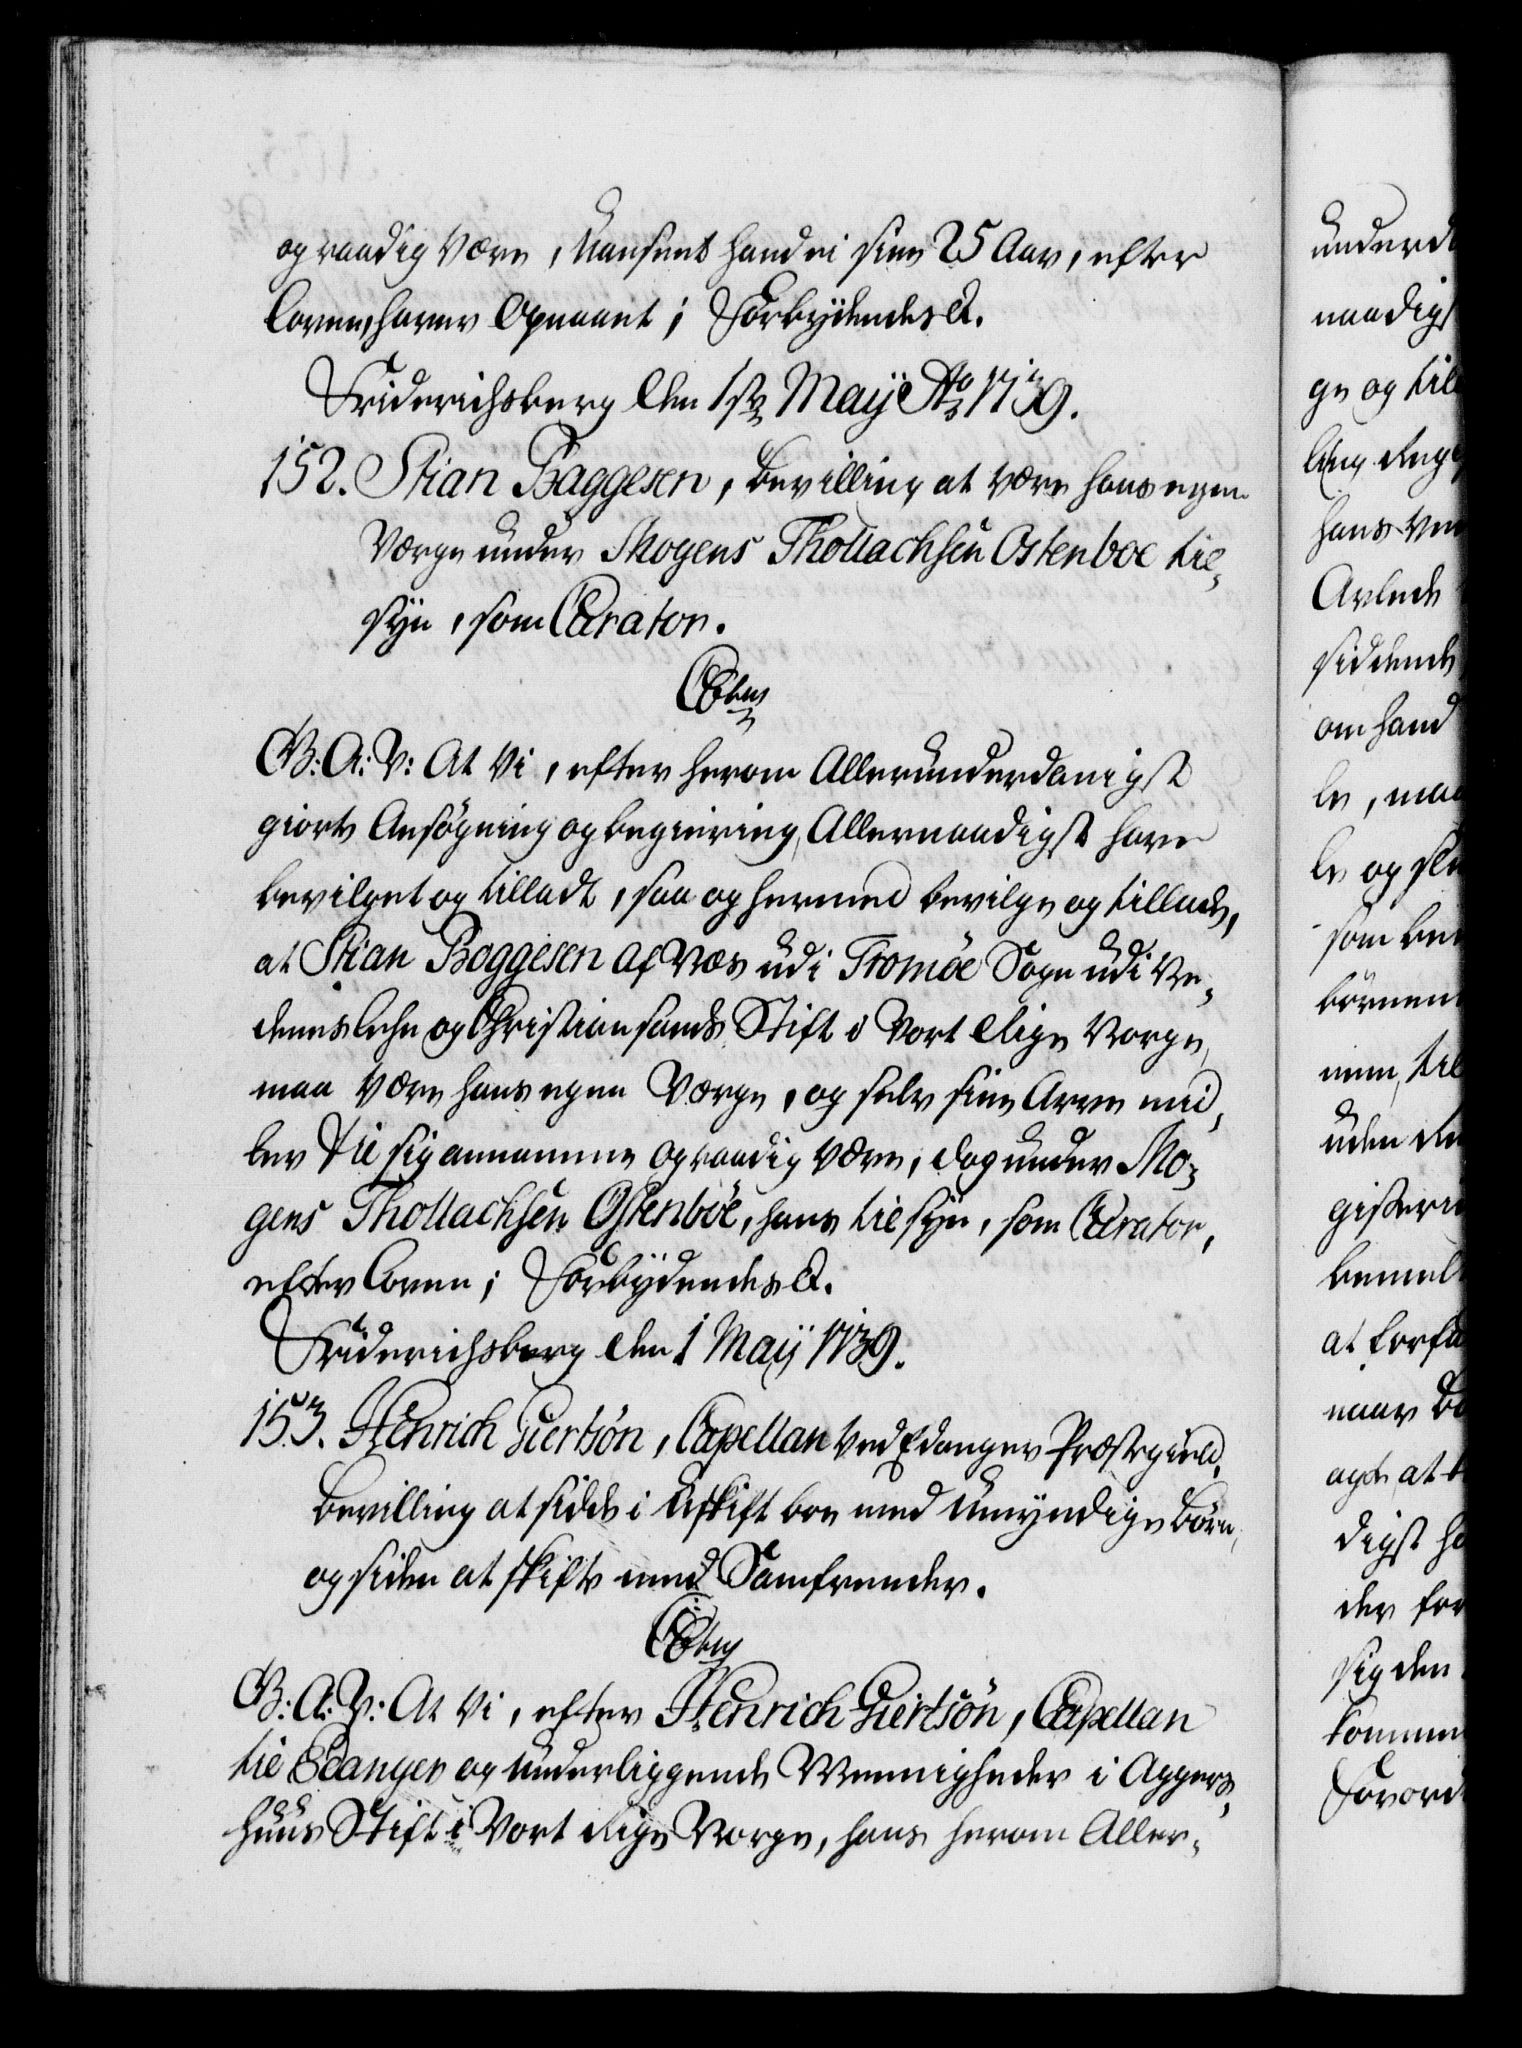 og raadig være, Uanseet hand ei sine 25 Aar, efter
Loven, haver Opnaaet; Forbydendes &.
Friderichsberg den 1ste Maÿ Ao 1739.
152. Stian Baggesen, bevilling at være hans egen
Værge under Mogens Thollachsen Ostenboe til-
syn, som Curator.
C6tus
G: A: V: At Vi, efter herom Allerunderdanigst
giorte Ansögning og begiering, Allernaadigst have
bevilget og tilladt, saa og hermed bevilge og tillade,
at Stian Baggesen af Næs udi Tromöe Sogn udi Ne-
denes Lehn og Christiansands Stift i Vort Rige Norge,
maa være hans egen Værge, og selv sine Arve mid-
ler til sig annamme og raadig være, dog under Mo-
gens Thollachsen Ostenböe, hans tilsyn, som Curator,
efter Loven; Forbydendes &.
Friderichsberg den 1 Maÿ 1739.
153. Henrich Giertsön, Capellan ved Edanger Præstegield,
bevilling at sidde i Uskift boe med Umyndige Börn,
og siden at skifte med Samfrender.
C6tus
G: A: V: At Vi, efter Henrich Giertsön, Capellan
til Edanger og underliggende Menigheder i Aggers-
huus Stift i Vort Rige Norge, hans herom Aller-
underd
naadigst
ge og till
hans
Avlede
siddende
om hand
le, maa
le og
som
börnene
nem, til
uden
gisteri
bemel
at forfa
naar
agte, at
digst ha
der for
sig den
komme
Forord